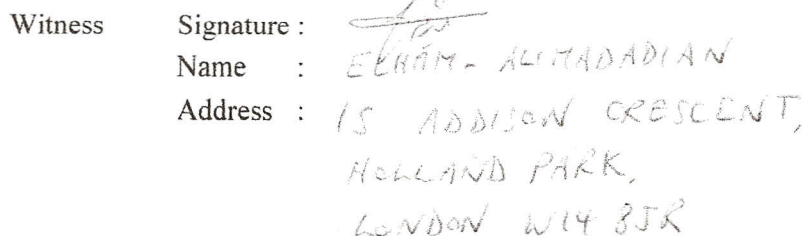 Witness Signature :
Name : ELHAM- ALIMADADIAN
Address : 15 ADDISON CRESCENT,
HOLLAND PARK,
LONDON W14 8JR